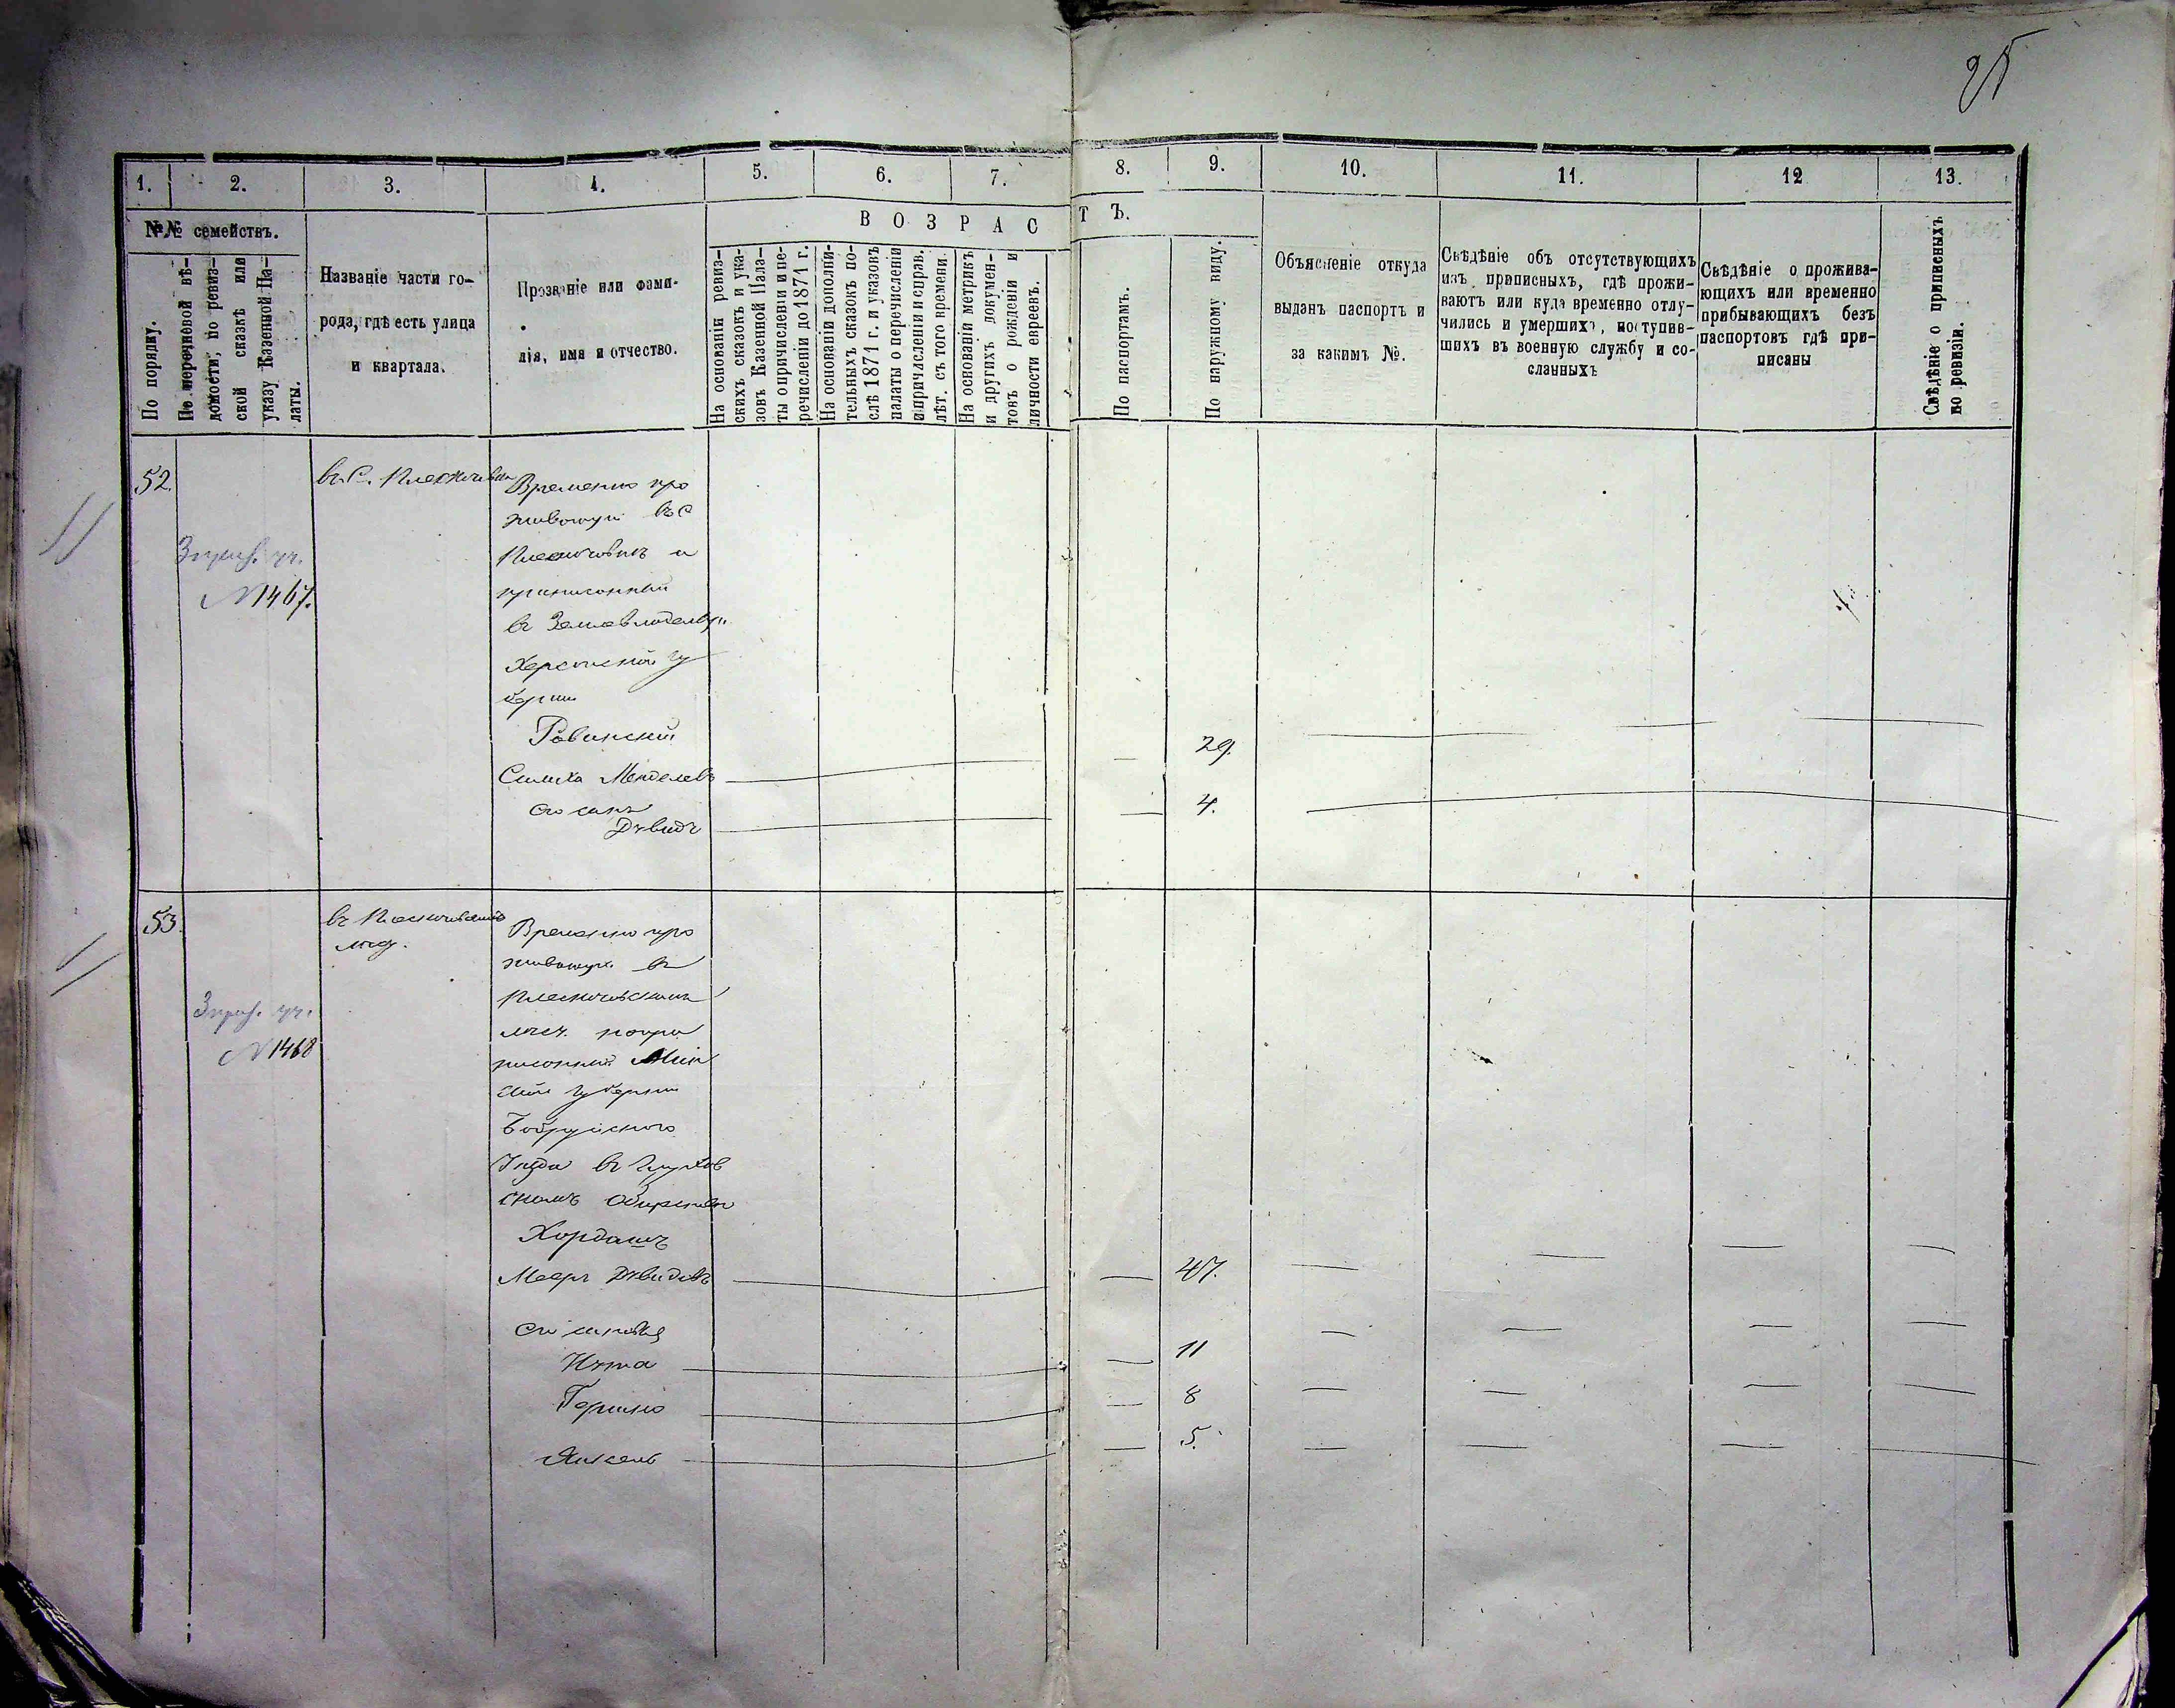 1. 2. 3. 4. 5. 6. 7. 8. 9. 10. 11. 12 13.
№№ семействъ.
По порядку.
По перечневой вѣ-
домости, по ревиз-
ской сказкѣ или
указу Казенной Па-
латы.
Названіе части го-
рода, гдѣ есть улица
и квартала.
Прозваніе или фами-
лія, имя и отчество.
ВОЗРАСТЪ.
На основаніи ревиз-
скихъ сказокъ и ука-
зовъ Казенной Пала-
ты о причисленіи и пе-
речисленіи до 1871 г.
На основаніи дополни-
тельныхъ сказокъ по-
слѣ 1871 г. и указовъ
палаты о перечисленіи
и причисленіи и справ.
лѣт. съ того времени.
На основаніи метрикъ
и другихъ докумен-
товъ о рожденіи и
личности евреевъ.
По паспортамъ.
По наружному виду.
Объясненіе откуда
выданъ паспортъ и
за какимъ №.
Свѣдѣніе объ отсутствующихъ
изъ приписныхъ, гдѣ прожи-
ваютъ или куда временно отлу-
чились и умершихъ, поступив-
шихъ въ военную службу и со-
сланныхъ
Свѣдѣніе о прожива-
ющихъ или временно
прибывающихъ безъ
паспортовъ гдѣ при-
писаны
Свѣдѣніе о приписныхъ
по ревизіи.
52.
№ 1467.
въ С.
Временно про
живающій въ С
и
приписанный
въ
Херсонской Гу
берніи
Равинскій
Симха Менделевъ 29.
его сынъ
Дувидъ 4.
53.
№ 1468
въ
Временно про
живающій въ
приписанный Мин
ской губерніи
Бобруйскаго
Уѣзда въ Глусков
скомъ Обществѣ
Хордашъ
Мееръ Дувидовъ 47.
его сыновья
Нута 11
Гершко 8
Янкель 5.